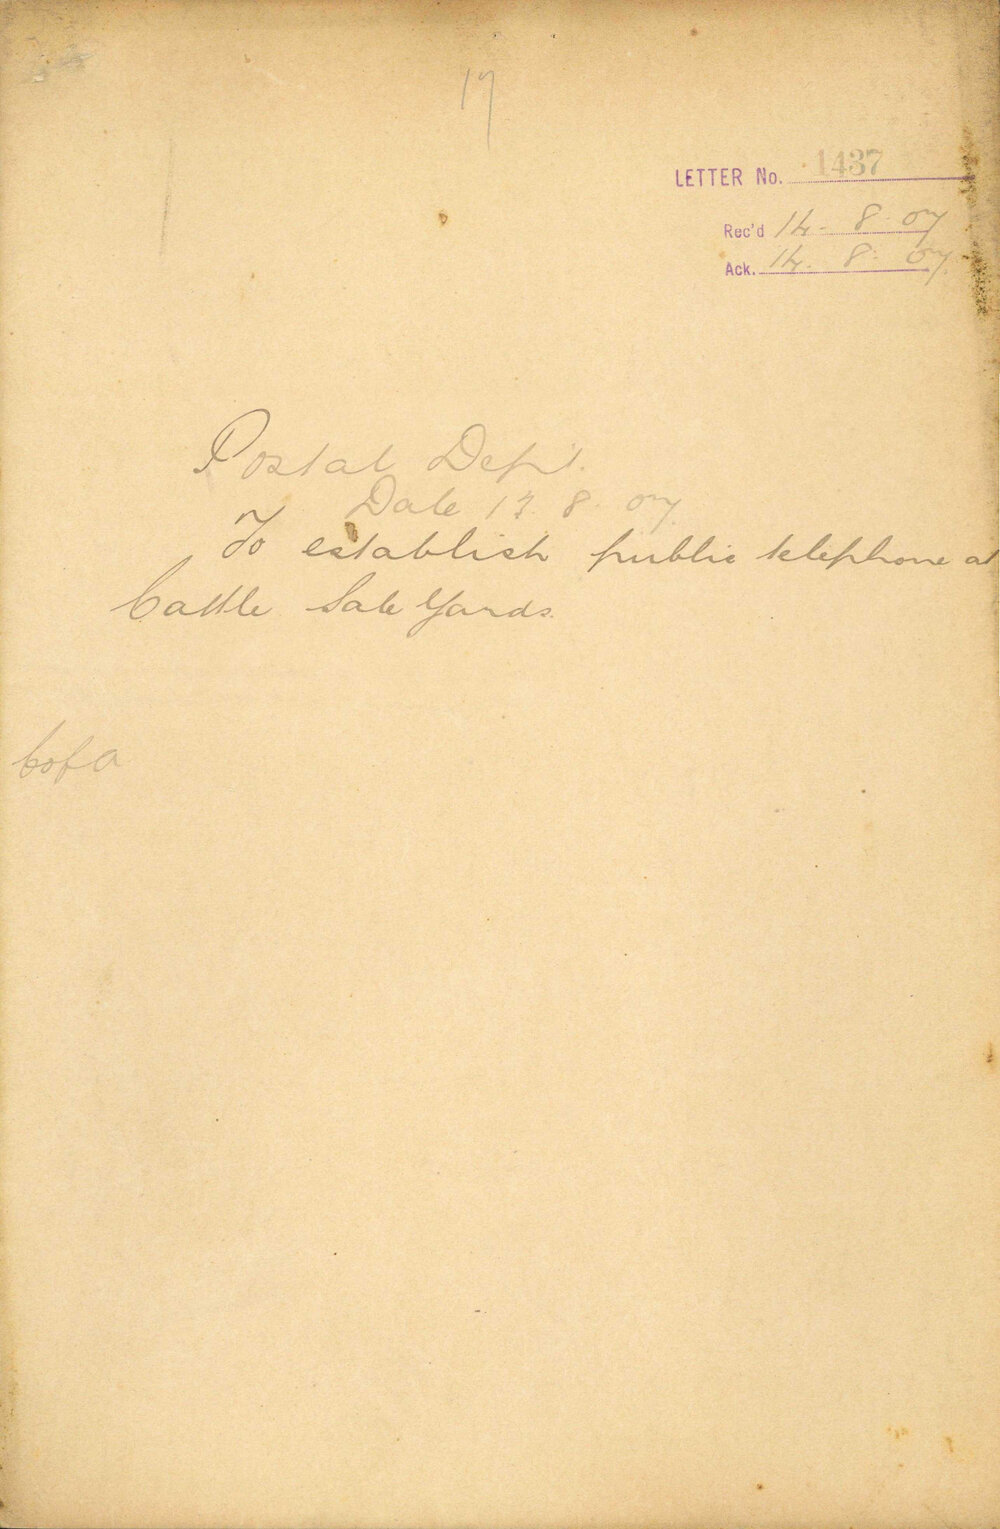 17
LETTER No. 1437
Rec'd 14. 8. 07
Ack. 14. 8. 07.
Postal Dept.
Date 13. 8. 07.
To establish public telephone at
Cattle Sale Yards.
C of A